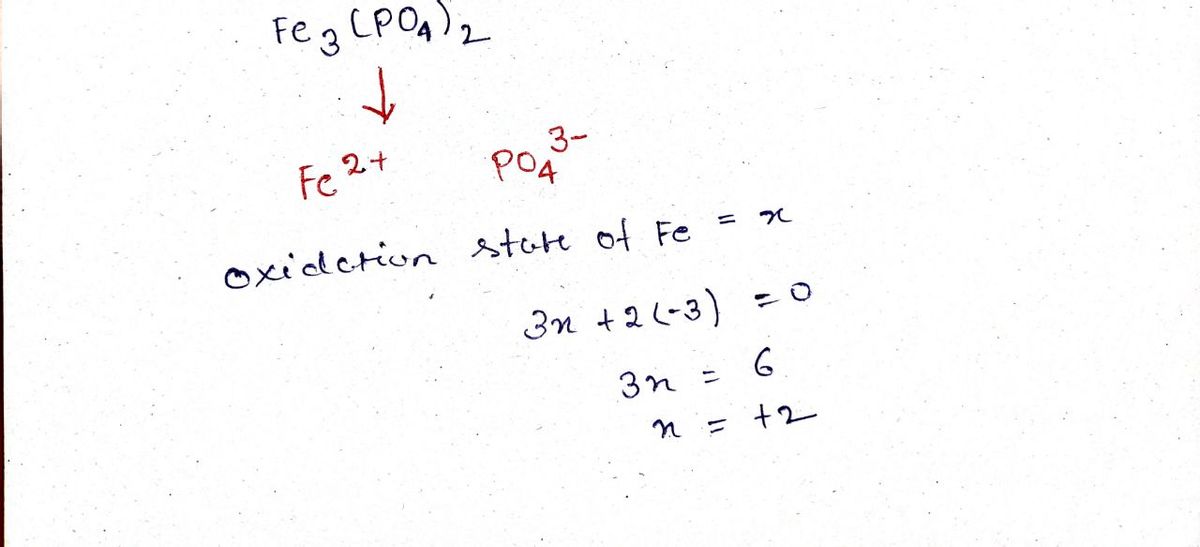 Fe₃(PO₄)₂
↓
Fe²⁺ PO₄³⁻
oxidation state of Fe = x
3x + 2(-3) = 0
3x = 6
x = +2